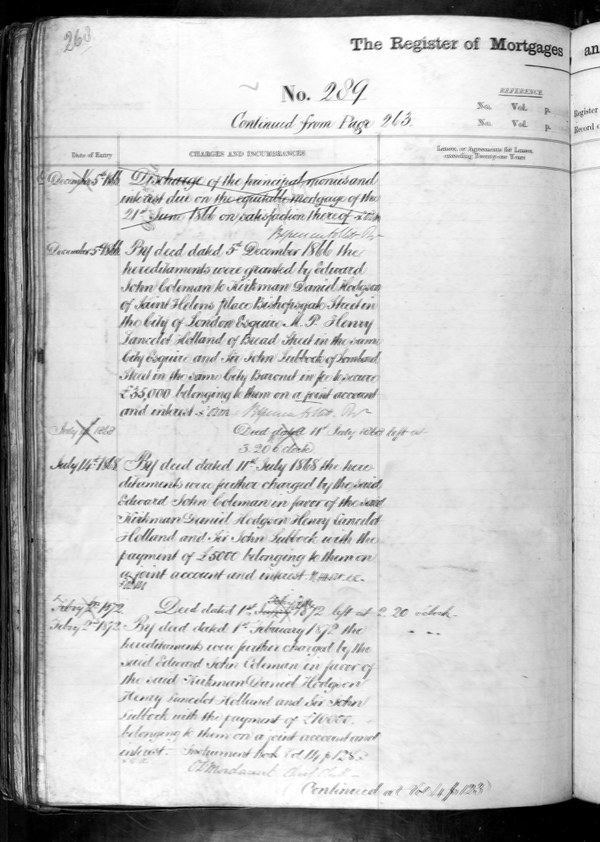 268
The Register of Mortgages
an
REFERENCE
No. Vol. p.
No. Vol. p.
No. 289
Continued from Page 263.
Register
Record o
Date of Entry
CHARGES AND INCUMBRANCES
Leases, or Agreements for Leases,
exceeding Twenty-one Years
December 5th 1866 Discharge of the principal monies and
interest due on the equitable mortgage of the
21st June 1866 on satisfaction thereof
December 5th 1866 By deed dated 5th December 1866 the
hereditaments were granted by Edward
John Coleman to Kirkman Daniel Hodgson
of Saint Helens place Bishopsgate Street in
the City of London Esquire M.P. Henry
Lancelot Holland of Bread Street in the same
City Esquire and Sir John Lubbock of Lombard
Street in the same City Baronet in fee to secure
£35,000 belonging to them on a joint account
and interest
July 1868 Deed dated 11th July 1868 left at
3.20 o'clock
July 14th 1868 By deed dated 11th July 1868 the here-
ditaments were further charged by the said
Edward John Coleman in favor of the said
Kirkman Daniel Hodgson Henry Lancelot
Holland and Sir John Lubbock with the
payment of £5000 belonging to them on
a joint account and interest
Febry 2nd 1872 Deed dated 1st February 1872 left at 2.20 o'clock
Febry 2nd 1872 By deed dated 1st February 1872 the
hereditaments were further charged by the
said Edward John Coleman in favor of
the said Kirkman Daniel Hodgson
Henry Lancelot Holland and Sir John
Lubbock with the payment of £10000
belonging to them on a joint account and
interest - Instrument Book Vol 14 p 128
Continued at Vol 4 p 123